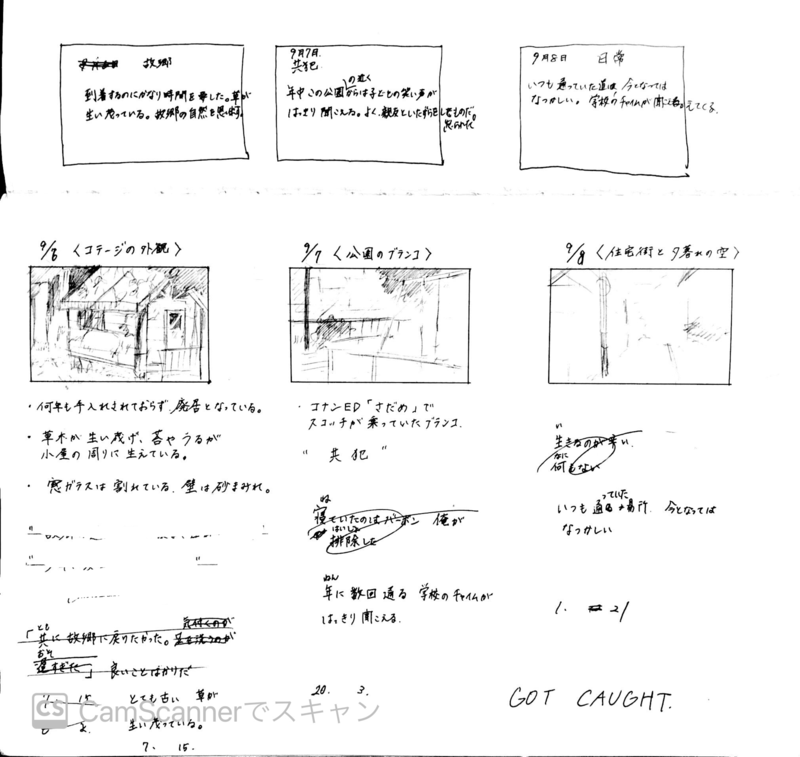 故郷
到着するのにかなり時間を要した。草が
生い茂っている。故郷の自然を思い出す。
9月7日.
共犯
の近く
年中この公園からは子どもの笑い声が
はっきり聞こえる。よく、親友といたずらをしたものだ。
9月8日 日常
いつも通っていた道は 今となっては
なつかしい。学校のチャイムが聞こえてくる。
9/6 〈コテージの外観〉
9/7 〈公園のブランコ〉
9/8 〈住宅街と夕暮れの空〉
・何年も手入れされておらず 廃居となっている。
・草木が生い茂げ、苔やうるが
小屋の周りに生えている。
・窓ガラスは割れている、壁は砂まみれ。
・コナンED「さだめ」で
スコッチが乗っていたブランコ.
" 共犯 "
い
生きるのが辛い.
なに
何もない
っていた
いつも通る場所. 今となっては
なつかしい
1. 21
寝ていたのはバーボン 俺が
はいじょ
排除した
ねん
年に数回通る 学校のチャイムが
はっきり聞こえる.
20. 3.
とも
「共に故郷に戻りたかった。
遅すぎた」 良いことばかりだ
7. 15 とても古い 草が
生い茂っている。
7. 15.
GOT CAUGHT.
CS CamScannerでスキャン